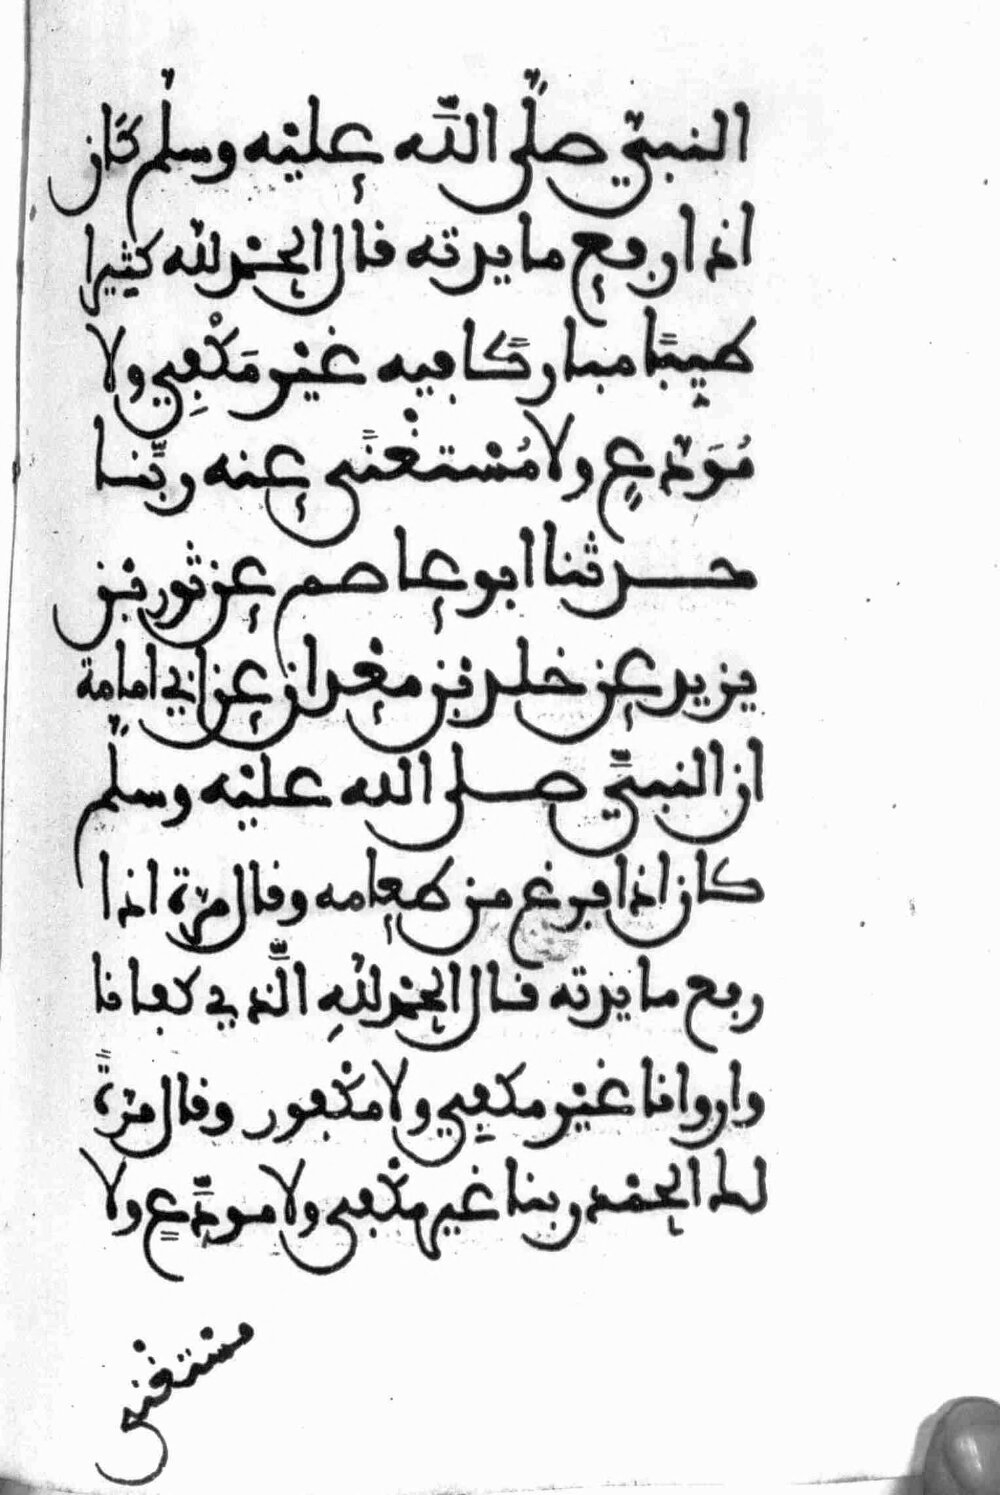 النبيّ صلّى اللّه عليْه وسلّم كَان
اذا رفع مايدته قال الحمْد للّه كثيرا
طيّبًا مباركًا فيه غيْر مَكْفِيٍ ولا
مُوَدّعٍ ولا مُسْتغْنًى عنه ربّنا
حدثنا ابو عاصم عن ثور بن
يزيد عن خلد بن معْدان عن ابي امامة
ان النبيّ صلى الله عليْه وسلّم
كان اذا فرغ من طعامه وقال مرّة اذا
رفع مايدته قال الحمْد للّهِ الّذي كفانا
واروانا غيْر مكفيٍ ولا مكْفور وقال مرّةً
لك الحمْد ربنا غير مكْفى ولا مودّعٍ ولا
مسْتغْنى